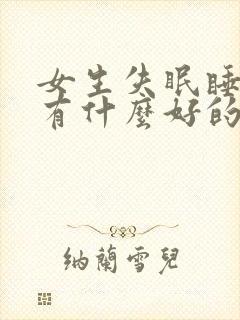 女生失眠睡
有什麼好的
納蘭雪兒